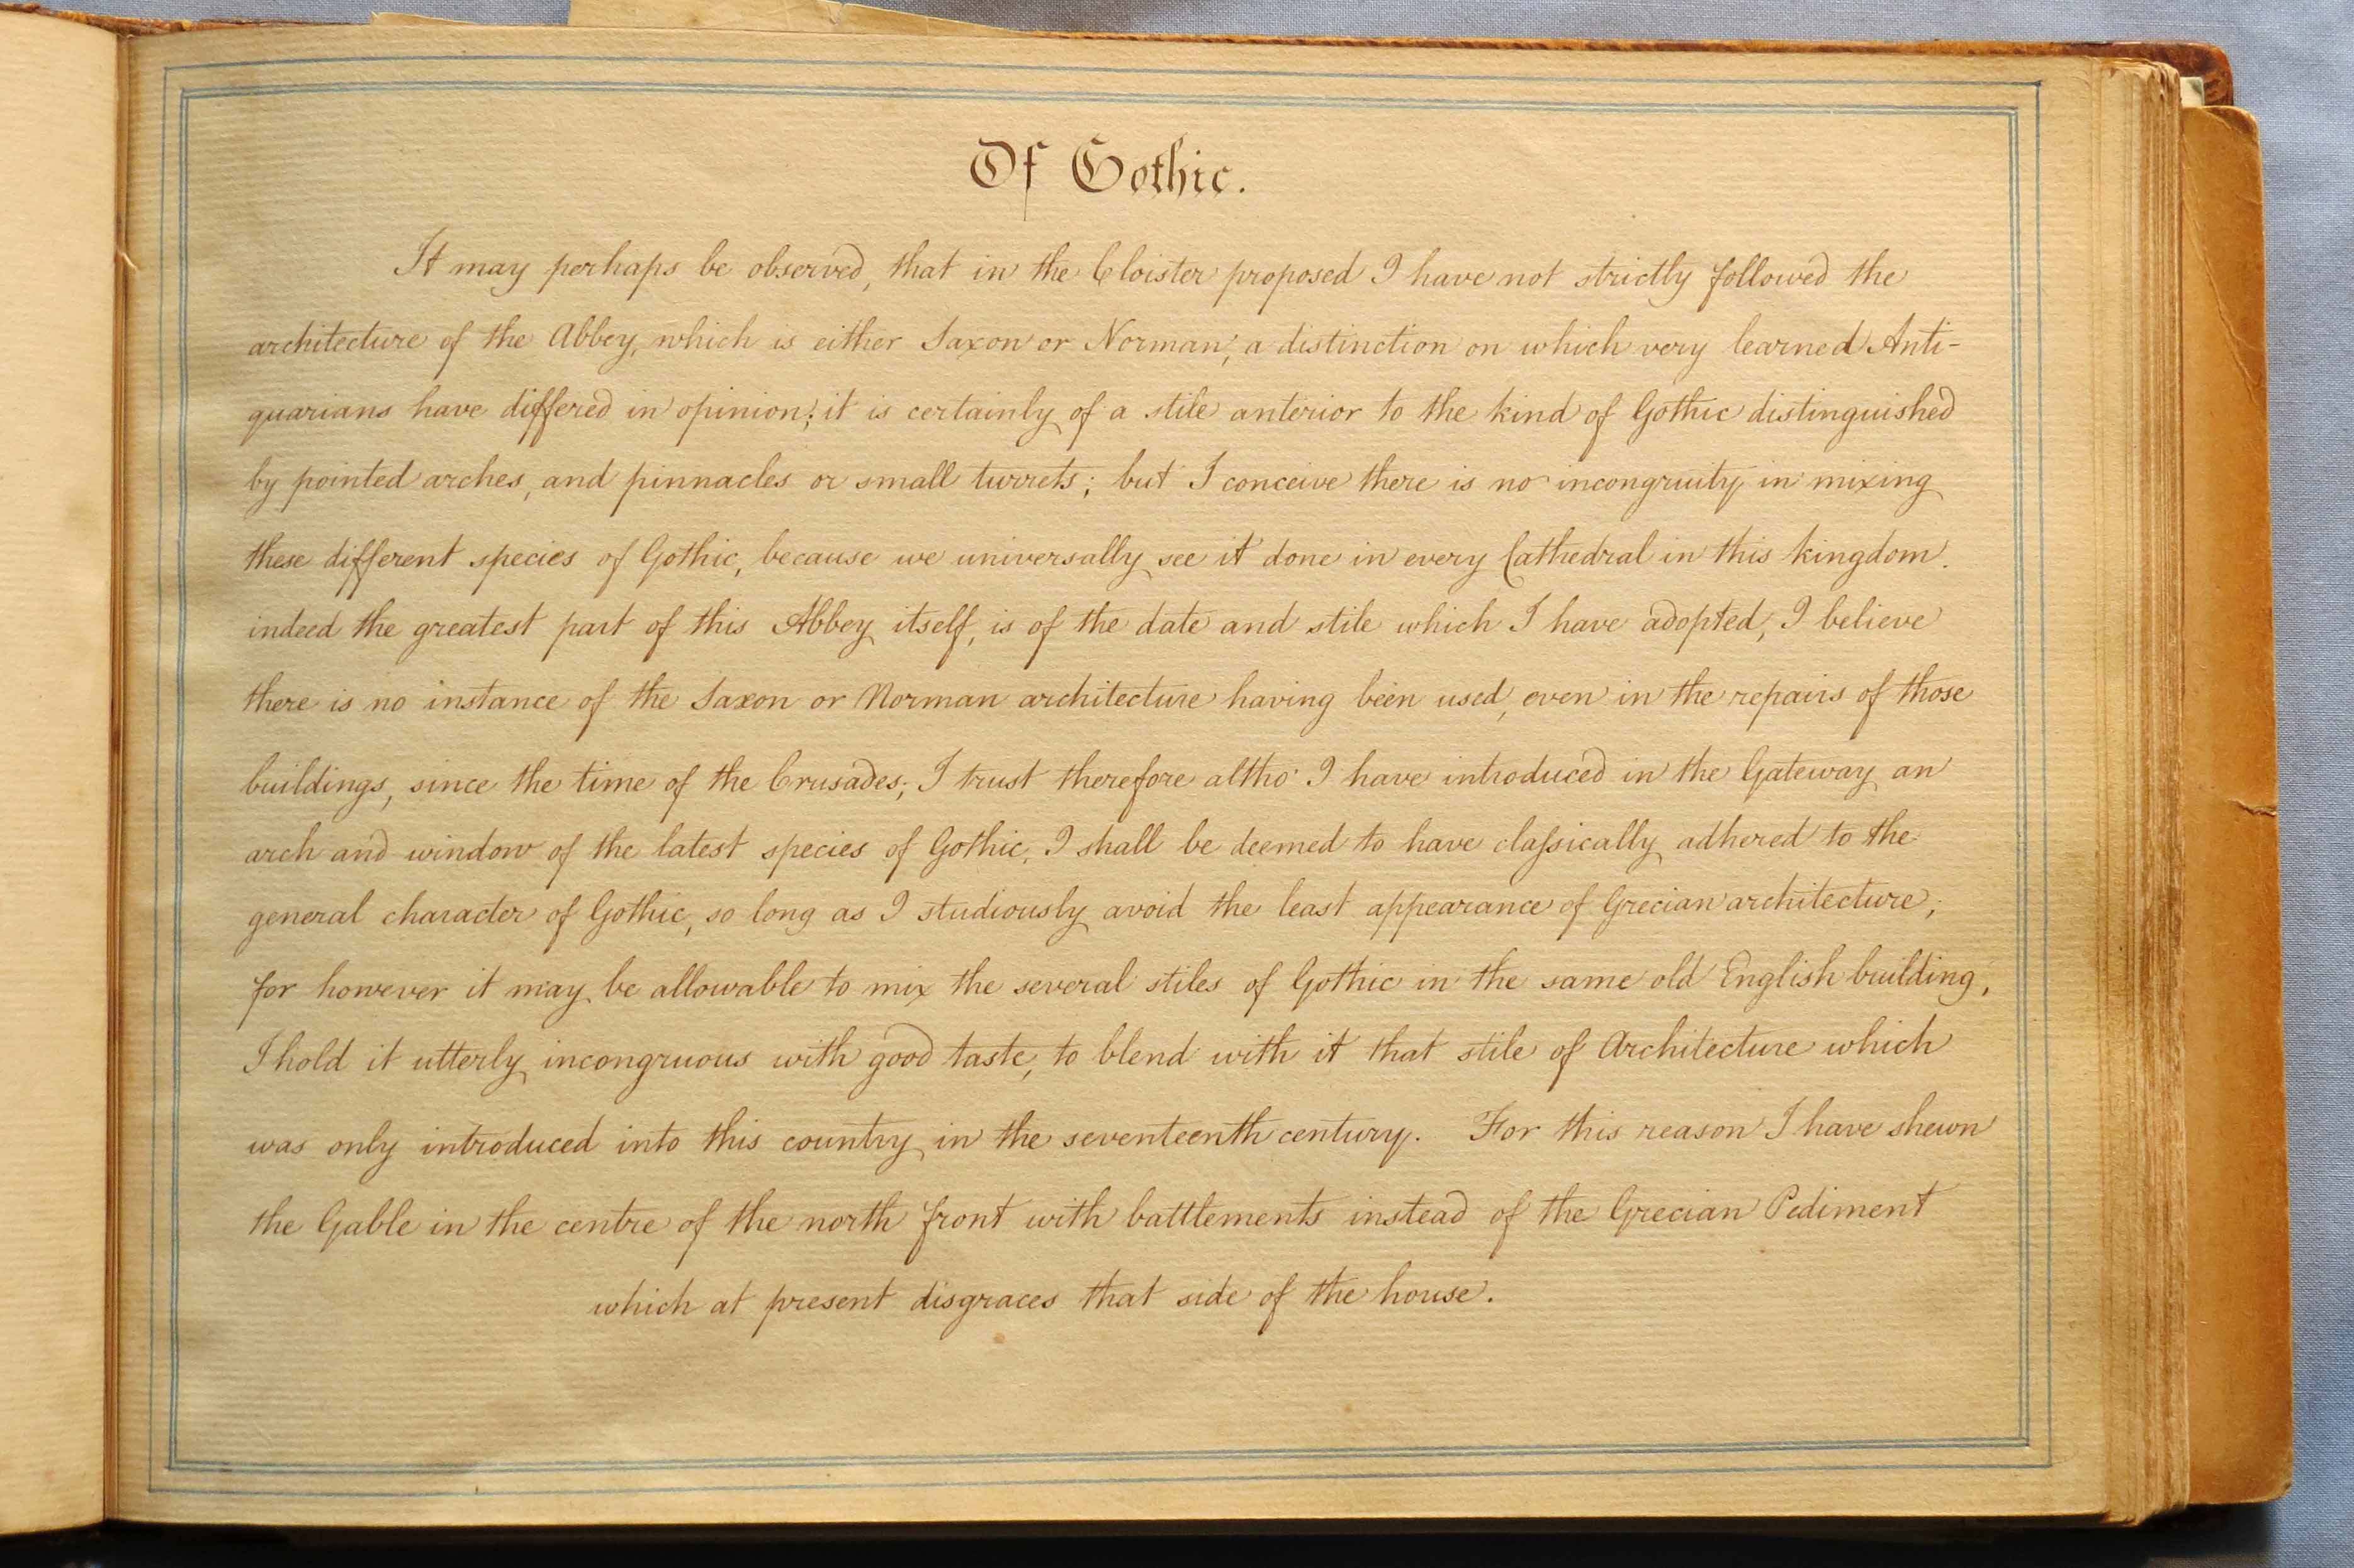 Of Gothic.
It may perhaps be observed, that in the Cloister proposed I have not strictly followed the
architecture of the Abbey, which is either Saxon or Norman, a distinction on which very learned Anti-
quarians have differed in opinion; it is certainly of a stile anterior to the kind of Gothic distinguished
by pointed arches, and pinnacles or small turrets; but I conceive there is no incongruity in mixing
these different species of Gothic, because we universally see it done in every Cathedral in this kingdom.
indeed the greatest part of this Abbey itself, is of the date and stile which I have adopted, I believe
there is no instance of the Saxon or Norman architecture having been used, even in the repairs of those
buildings, since the time of the Crusades; I trust therefore altho' I have introduced in the Gateway an
arch and window of the latest species of Gothic, I shall be deemed to have claſsically adhered to the
general character of Gothic, so long as I studiously avoid the least appearance of Grecian architecture;
for however it may be allowable to mix the several stiles of Gothic in the same old English building,
I hold it utterly incongruous with good taste, to blend with it that stile of Architecture which
was only introduced into this country in the seventeenth century. For this reason I have shewn
the Gable in the centre of the north front with battlements instead of the Grecian Pediment
which at present disgraces that side of the house.